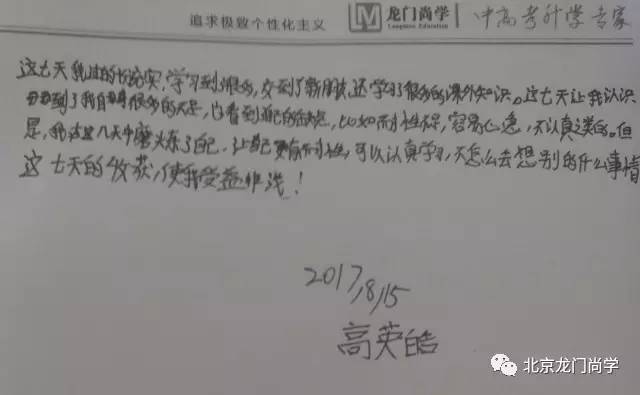 追求极致个性化主义
龙门尚学
Longmen Education
中高考升学专家
这七天我过的很充实,学习到很多,交到了新朋友,还学习了很多的课外知识。这七天让我认识
到了我自身很多的不足,也看到自己的缺点,比如耐性不足,容易心急,不认真之类的。但
是,我在这几天中磨炼了自己,让自己更有耐性,可以认真学习,不怎么去想别的什么事情
这七天的收获,使我受益非浅!
2017,8,15
高英皓
北京龙门尚学